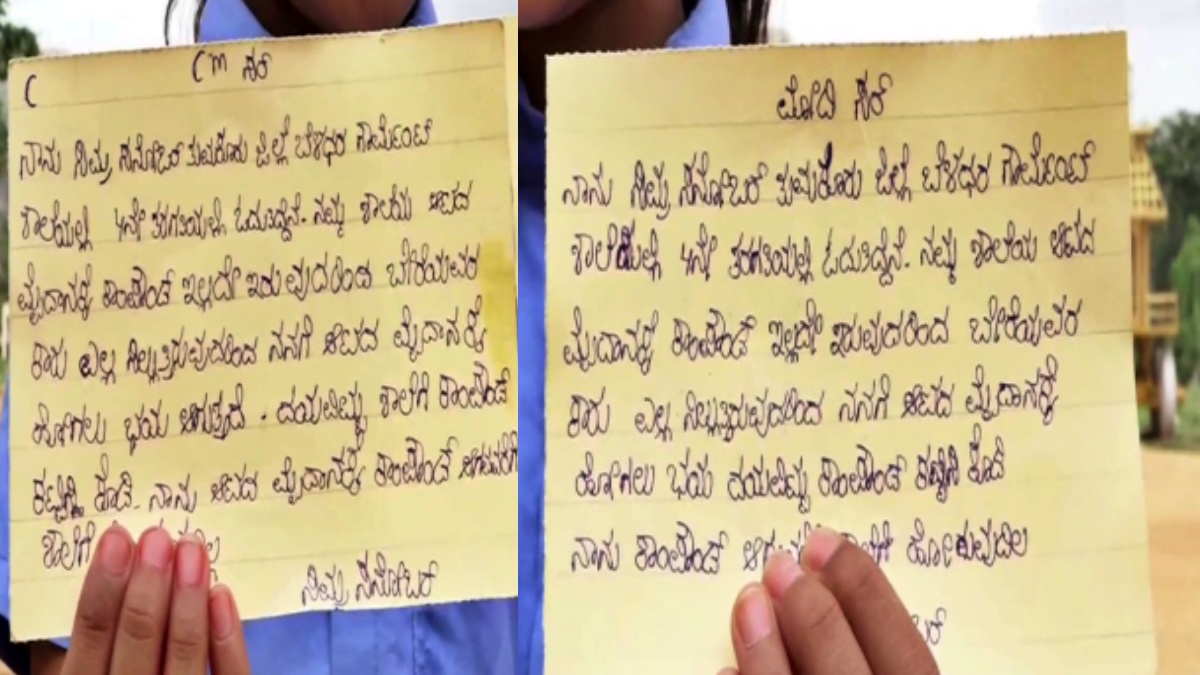 C
Cm ಸರ್
ನಾನು ನಿಮ್ಮ ಸನೋಬರ್ ತುಮಕೂರು ಜಿಲ್ಲೆ ಬೆಳಧರ ಗಾರ್ಮೆಂಟ್
ಶಾಲೆಯಲ್ಲಿ 4ನೇ ತರಗತಿಯಲ್ಲಿ ಓದುತಿದ್ದೆನೆ. ನಮ್ಮ ಶಾಲೆಯ ಆಟದ
ಮೈದಾನಕ್ಕೆ ಕಾಂಪೌಂಡ್ ಇಲ್ಲದೇ ಇರುವುದರಿಂದ ಬೇರೆಯವರ
ಕಾರು ಎಲ್ಲ ನಿಲ್ಲುತ್ತಿರುವುದರಿಂದ ನನಗೆ ಆಟದ ಮೈದಾನಕ್ಕೆ
ಹೋಗಲು ಭಯ ಆಗುತ್ತದೆ. ದಯವಿಟ್ಟು ಶಾಲೆಗೆ ಕಾಂಪೌಂಡ್
ಕಟ್ಟಿಸಿ ಕೊಡಿ. ನಾನು ಆಟದ ಮೈದಾನಕ್ಕೆ ಕಾಂಪೌಂಡ್ ಆಗುವವರೆಗೆ
ಶಾಲೆಗೆ
ನಿಮ್ಮ ಸನೋಬರ್
ಮೋದಿ ಸರ್
ನಾನು ನಿಮ್ಮ ಸನೋಬರ್ ತುಮಕೂರು ಜಿಲ್ಲೆ ಬೆಳಧರ ಗಾರ್ಮೆಂಟ್
ಶಾಲೆಯಲ್ಲಿ 4ನೇ ತರಗತಿಯಲ್ಲಿ ಓದುತಿದ್ದೆನೆ. ನಮ್ಮ ಶಾಲೆಯ ಆಟದ
ಮೈದಾನಕ್ಕೆ ಕಾಂಪೌಂಡ್ ಇಲ್ಲದೇ ಇರುವುದರಿಂದ ಬೇರೆಯವರ
ಕಾರು ಎಲ್ಲ ನಿಲ್ಲುತ್ತಿರುವುದರಿಂದ ನನಗೆ ಆಟದ ಮೈದಾನಕ್ಕೆ
ಹೋಗಲು ಭಯ ದಯವಿಟ್ಟು ಕಾಂಪೌಂಡ್ ಕಟ್ಟಿಸಿ ಕೊಡಿ
ನಾನು ಕಾಂಪೌಂಡ್ ಹೋಗುವುದಿಲ